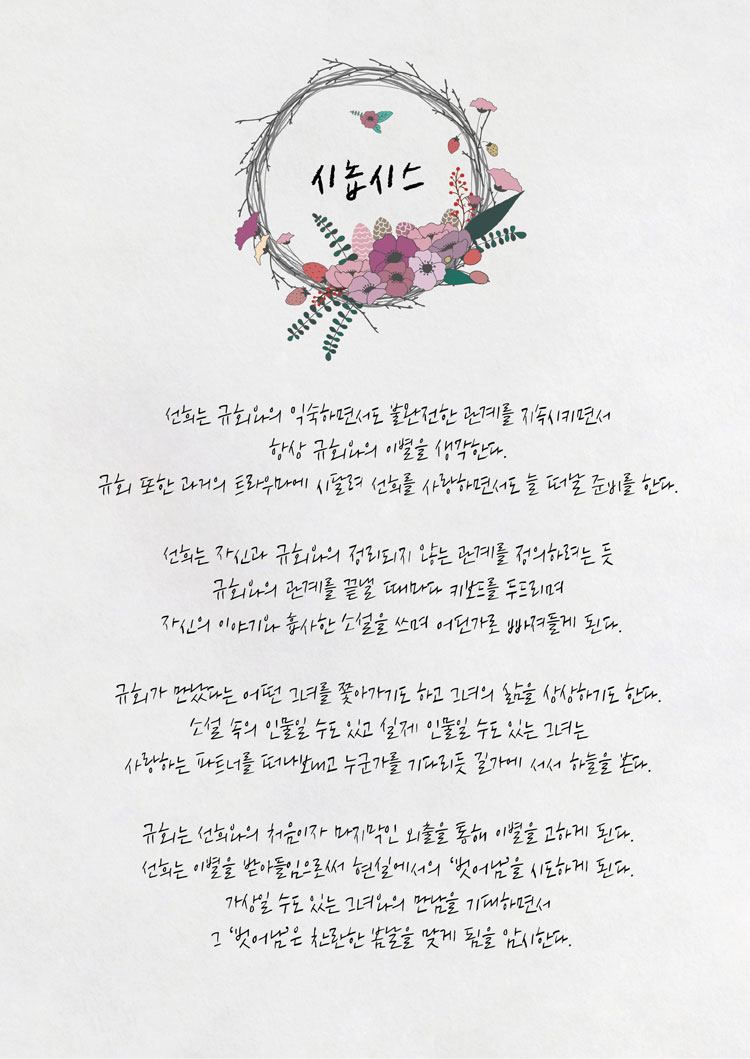 시놉시스
선희는 규회와의 익숙하면서도 불완전한 관계를 지속시키면서
항상 규회와의 이별을 생각한다.
규회 또한 과거의 트라우마에 시달려 선희를 사랑하면서도 늘 떠날 준비를 한다.
선희는 자신과 규회와의 정리되지 않는 관계를 정의하려는 듯
규회와의 관계를 끝낼 때마다 키보드를 두드리며
자신의 이야기와 흡사한 소설을 쓰며 어딘가로 빠져들게 된다.
규회가 만났다는 어떤 그녀를 쫓아가기도 하고 그녀의 삶을 상상하기도 한다.
소설 속의 인물일 수도 있고 실제 인물일 수도 있는 그녀는
사랑하는 파트너를 떠나보내고 누군가를 기다리듯 길가에 서서 하늘을 본다.
규회는 선희와의 처음이자 마지막인 외출을 통해 이별을 고하게 된다.
선희는 이별을 받아들임으로써 현실에서의 '벗어남'을 시도하게 된다.
가상일 수도 있는 그녀와의 만남을 기대하면서
그 '벗어남'은 찬란한 봄날을 맞게 됨을 암시한다.